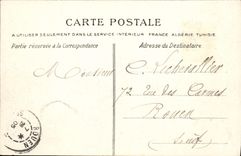 CARTE POSTALE
A UTILISER SEULEMENT DANS LE SERVICE INTERIEUR FRANCE ALGERIE TUNISIE
Partie réservée à la Correspondance
Adresse du Destinataire
Monsieur
72 rue des Carmes
Rouen
ROUEN